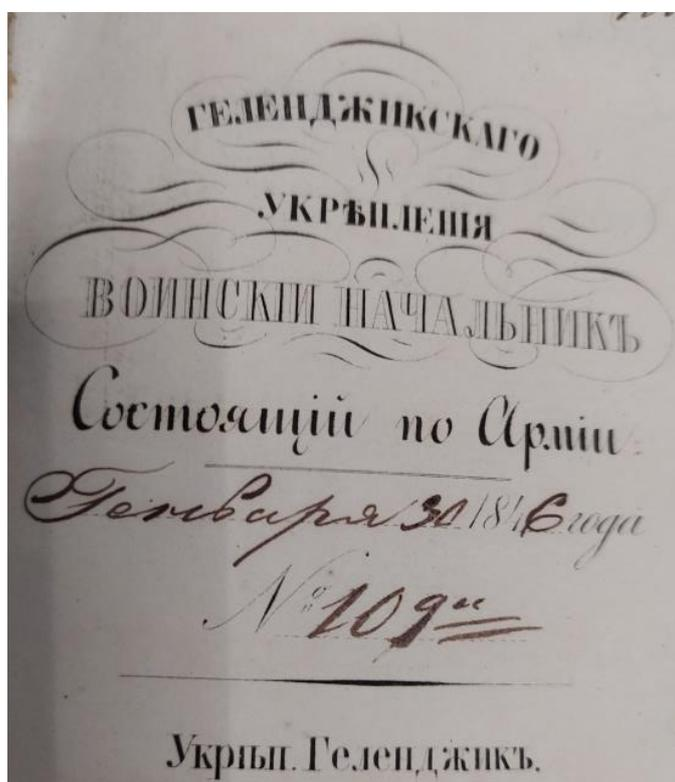 ГЕЛЕНДЖИКСКАГО
УКРѢПЛЕНІЯ
ВОИНСКІЙ НАЧАЛЬНИКЪ
Состоящій по Арміи
Генваря 30 1846 года
№ 109
Укрѣп. Геленджикъ.